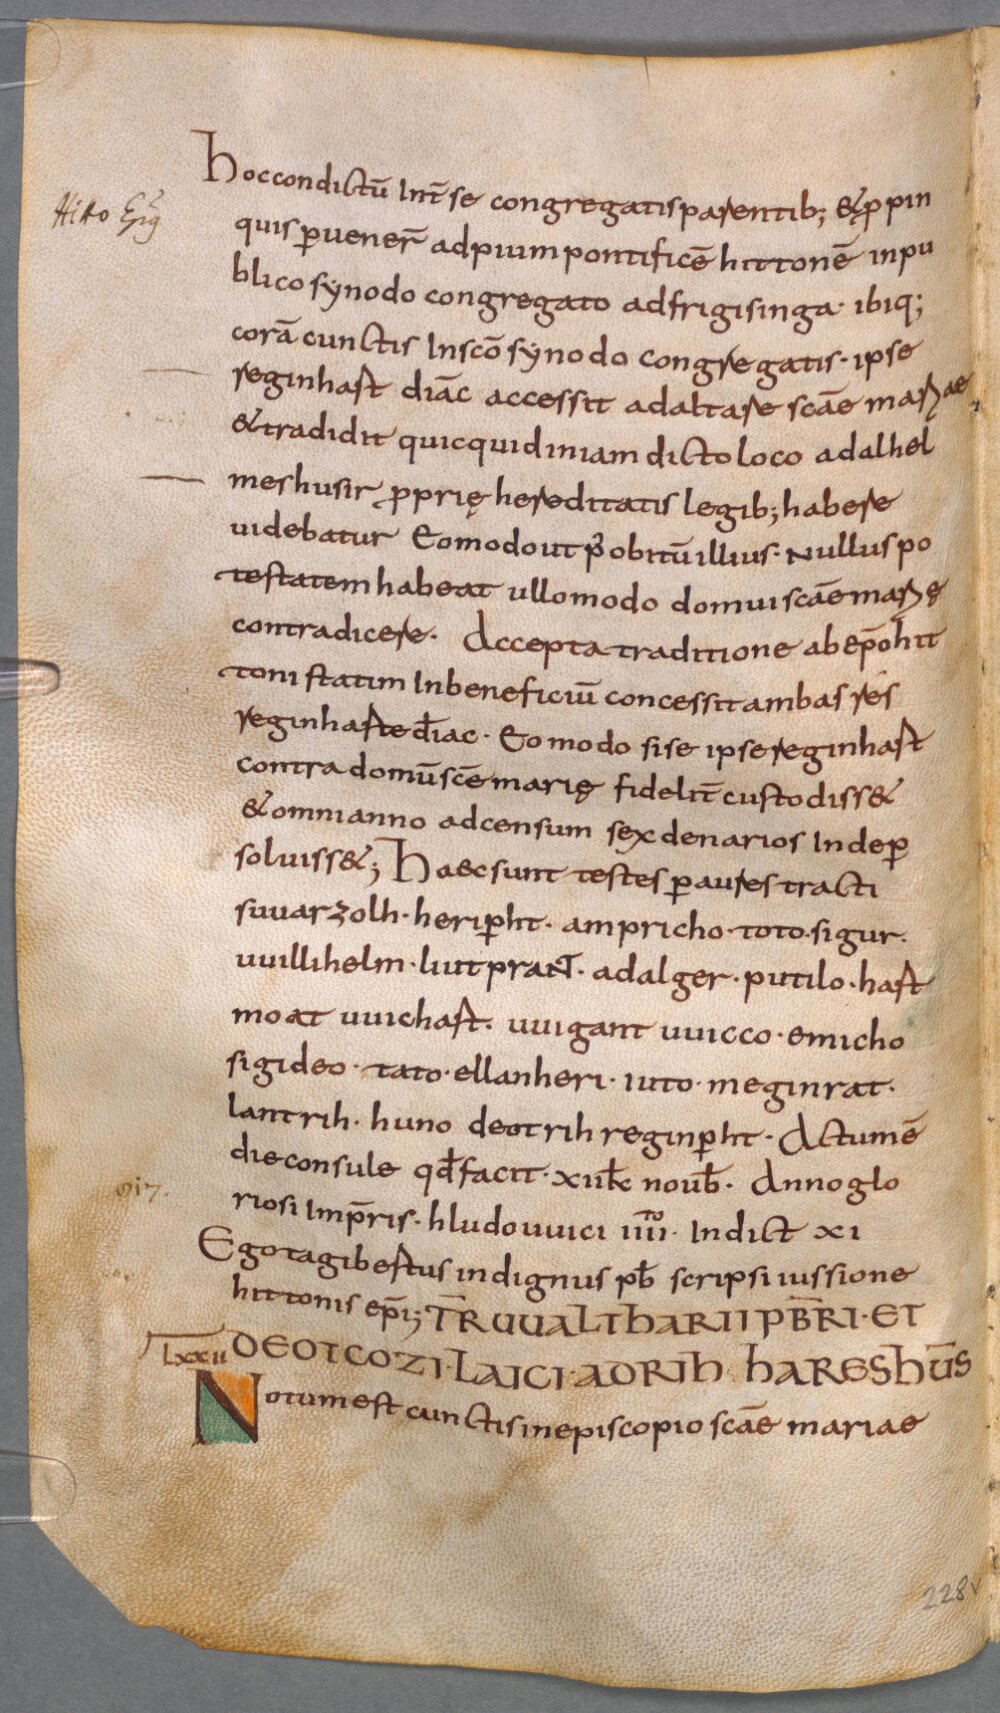 Hoc condictū Int̄ se congregatis parentib; & ꝓpin
Hitto Ep̄s
quis ꝑuener̄ ad pium pontificē hittonē in pu
blico synodo congregato ad frigisinga· ibiq;
corā cunctis In scō synodo congregatis· ipse
reginhast diāc accessit ad altare scāe mariae
& tradidit quicquid in iam dicto loco adalhel
meshusir ꝓprię hereditatis legib; habere
uidebatur Eo modo ut p̄ obitū illius· Nullus po
testatem habeat ullo modo domui scāe marię
contradicere· Accepta traditione ab ep̄o hit
toni statim In beneficiū concessit ambas res
reginhaste diac̄· Eo modo si se ipse reginhast
contra domū scē marię fidelit̄ custodiss&
& omni anno ad censum sex denarios Inde ꝑ
soluiss&; Haec sunt testes ꝑ aures tracti
suuarzolh· heriꝑht· ampricho· toto· sigur·
uuillihelm· liutprant· adalger· putilo· hast
moat uuichast· uuigant uuicco· emicho
sigideo· tato· ellanheri· iuto· meginrat·
lantrih· huno deotrih reginꝑht· Actum ē
die consule qd̄ facit· xiik̄ nouƀ· Anno glo
817.
riosi Imp̄ris· hludouuici iiiito· Indict xi
Ego tagibestus indignus pƀ scripsi iussione
hittonis ep̄i; TR̄ UUALTHARII PB̄RI· ET
DEOTCOZI· LAICI· ADRIH HARESHŪS
Notum est cunctis in episcopio scāe mariae
228v